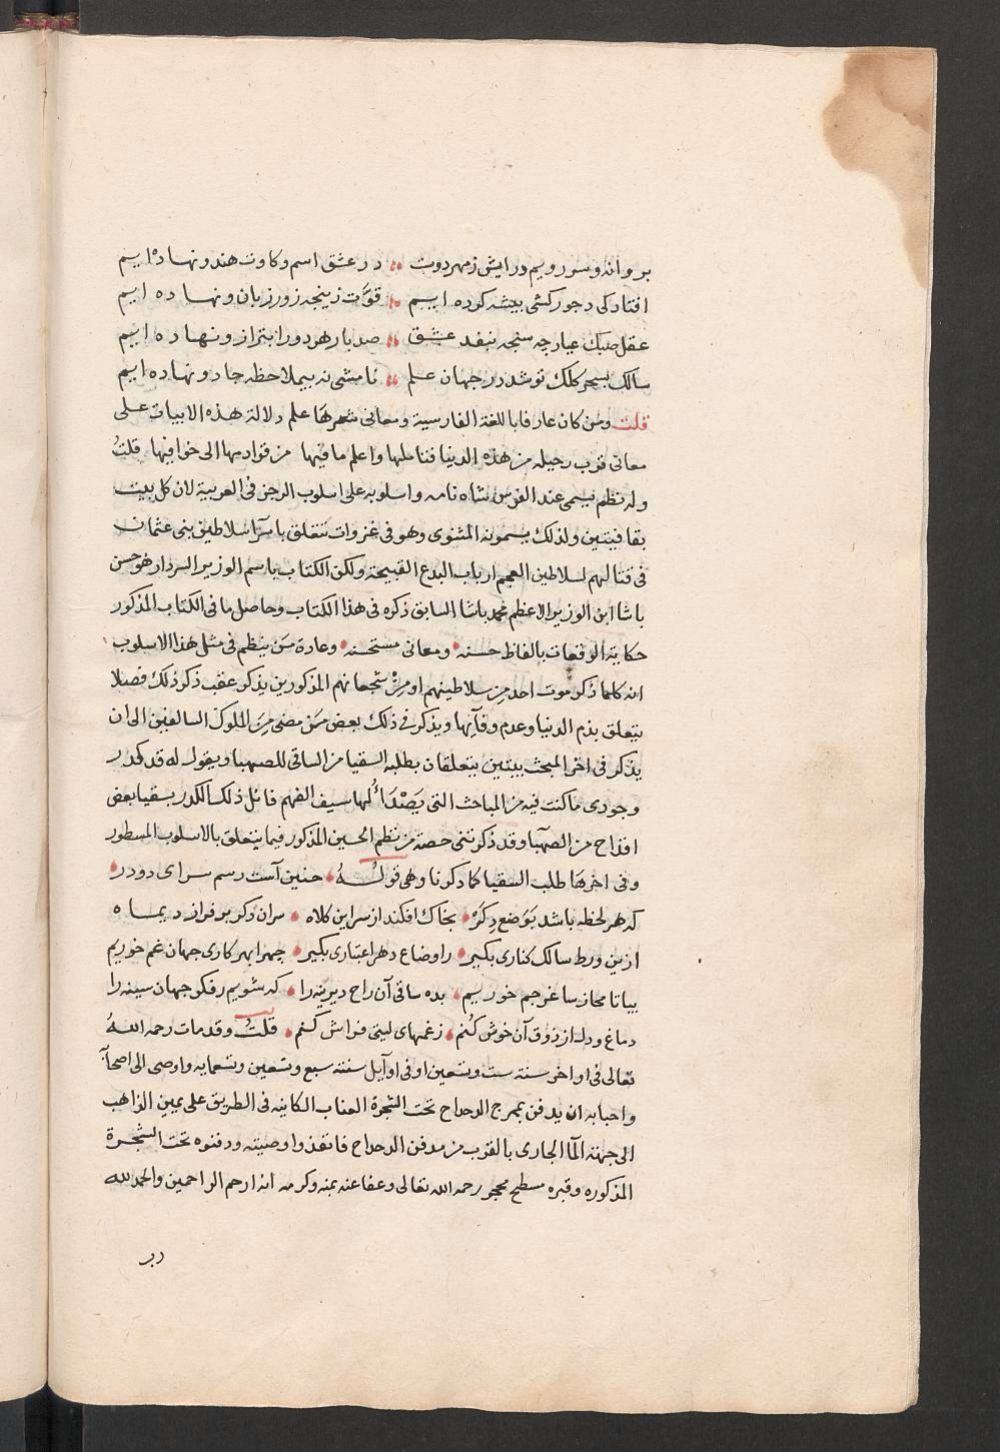 بروانه وسور ويم ورايش زمهر دوت ؞ در عشق اسم وكاوت هندو نهاده ايم
افتادكى دجور كشى بيشه كرده ايم ؞ قوّت زينجه زور زبان ونهاده ايم
عقل صبك عيارچه سنجه بنقد عشق ؞ صد بار هر دورا بترازو نهاده ايم
سالك بسحر كلك توشد در جهان علم ؞ نامشى نه بيملاحظه جادو نهاده ايم
قلت ومن كان عارفا باللغة الفارسية ومعانى شعرها علم دلالة هذه الابيات على
معانى قرب رحيله من هذه الدنيا فتاملها واعلم ما فيها من قوادمها الى خوافيها قلتُ
وله نظم يسمى عند الفرس شاه نامه واسلوبه على اسلوب الرجز فى العربية لان كل بيت
بقافيتين ولذلك يسمونه المثنوى وهو فى غزوات تتعلق باسرآ سلاطين بنى عثمان
فى قتالهم لسلاطين العجم ارباب البدع القبيحة ولكن الكتاب باسم الوزير السردار هو حسن
باشا ابن الوزير الاعظم محمد باشا السابق ذكره فى هذا الكتاب وحاصل ما فى الكتاب المذكور
حكاية الوقعات بالفاظ حسنه • ومعانى مستحسنه • وعادة مَن ينظم فى مثل هذا الاسلوب
انه كلما ذكر موت احد من سلاطينهم او من شجعانهم المذكورين يذكر عقب ذكر ذلك فصلا
يتعلق بذم الدنيا وعدم وفآئها ويذكر فى ذلك بعض مَن مضى مِنَ الملوك السالفين الى ان
يذكر فى اخر المبحث بيتين يتعلقان بطلبه السقيا من الساقى للصهبا ويقول له قد كدر
وجودى ما كنت فيه من المباحث التى يَصْدَاُ لها سيف الفهم فازل ذلك الكدر بسقيا بعض
اقداح من الصهبا وقد ذكرتنى حصة من نظم الحسين المذكور فيما يتعلق بالاسلوب المسطور
وفى اخرها طلب السقيا كما ذكرنا وهى قولُهُ • حنين آست رسم سراى دودر •
كه هر لحظه باشد بَوَضع دِكَرْ • بخاك افكند از سر اين كلاه • سران دكر بر فرازد بماه
ازين ورط سالك كنارى بكير • زاوضاع دهر اعتبارى بكير • چهرا بهر كارى جهان غم خوريم
بيا تا مجاز ساغر جم خوريم • بده ساقى آن راح ديرينه را • كه شويم زفكر جهان سينه را
دماغ ودل از ذوق آن خوش كنم • زغمهاى ليتى فراش كنم • قلتُ وقد مات رحمه اللهُ
تعالى فى اواخر سنة ست وتسعين او فى اوآيل سنة سبع وتسعين وتسعمايه واوصى الى اصحابه
واحبابه ان يدفن بمرج الدحداح تحت الشجرة العناب الكاينه فى الطريق على يمين الذاهب
الى جهة المآ الجارى بالقرب من مدفن الدحداح فانفذوا وصيته ودفنوه تحت الشجرة
المذكوره وقبره مسطح محجر رحمه الله تعالى وعفا عنه بمنه وكرمه انه ارحم الراحمين والحمد لله
رب